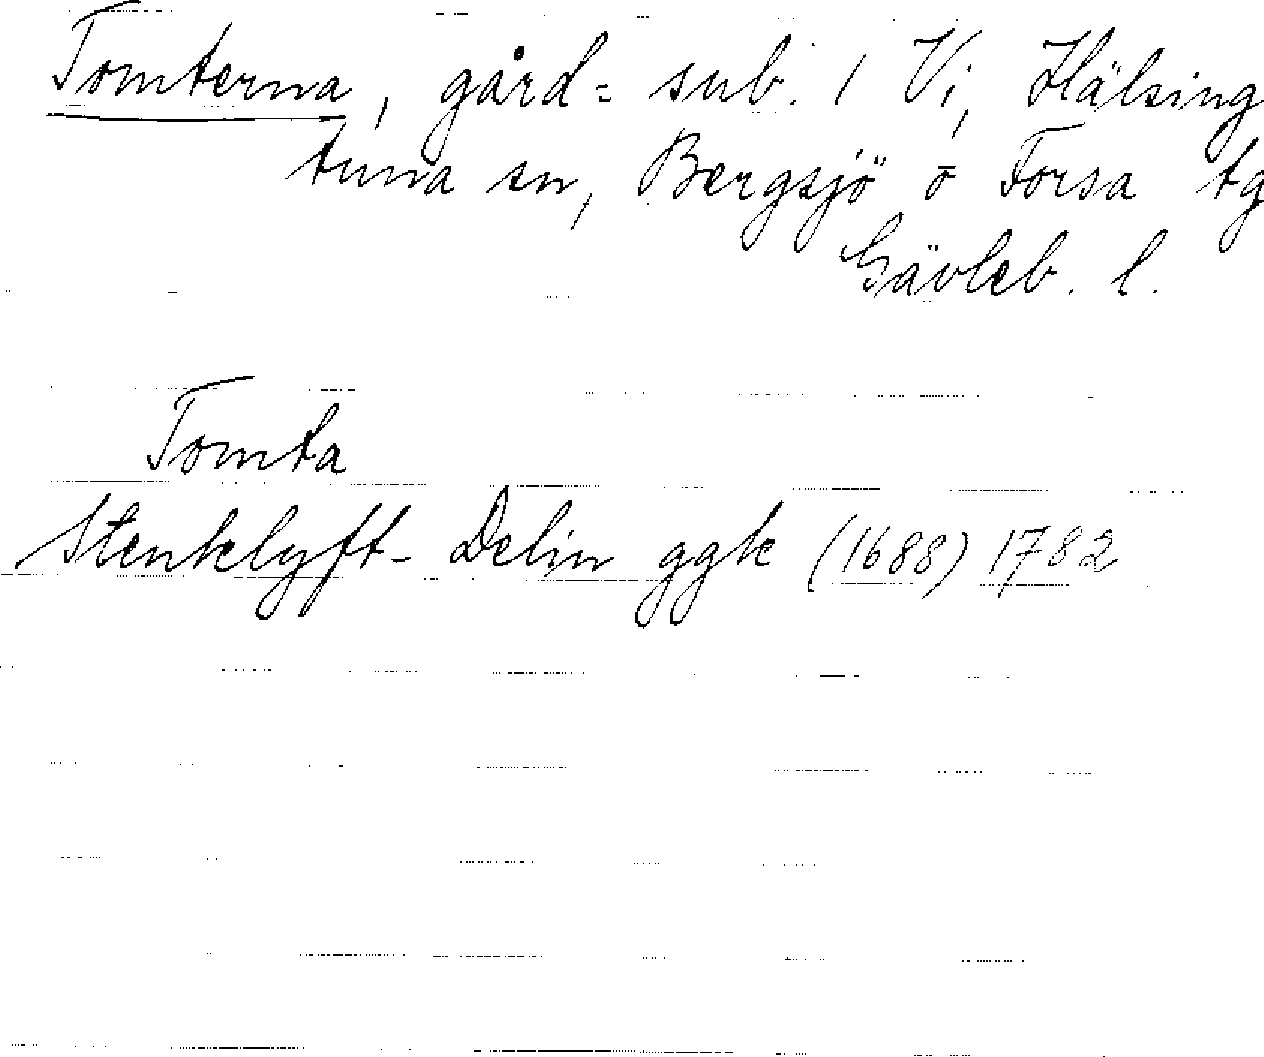 Tomterna, gård= sub. 1 Vi, Hälsing
tuna sn, Bergsjö o Forsa tg
Gävleb. l.
Tomta
Stenklyft- Delin ggk (1688) 1782